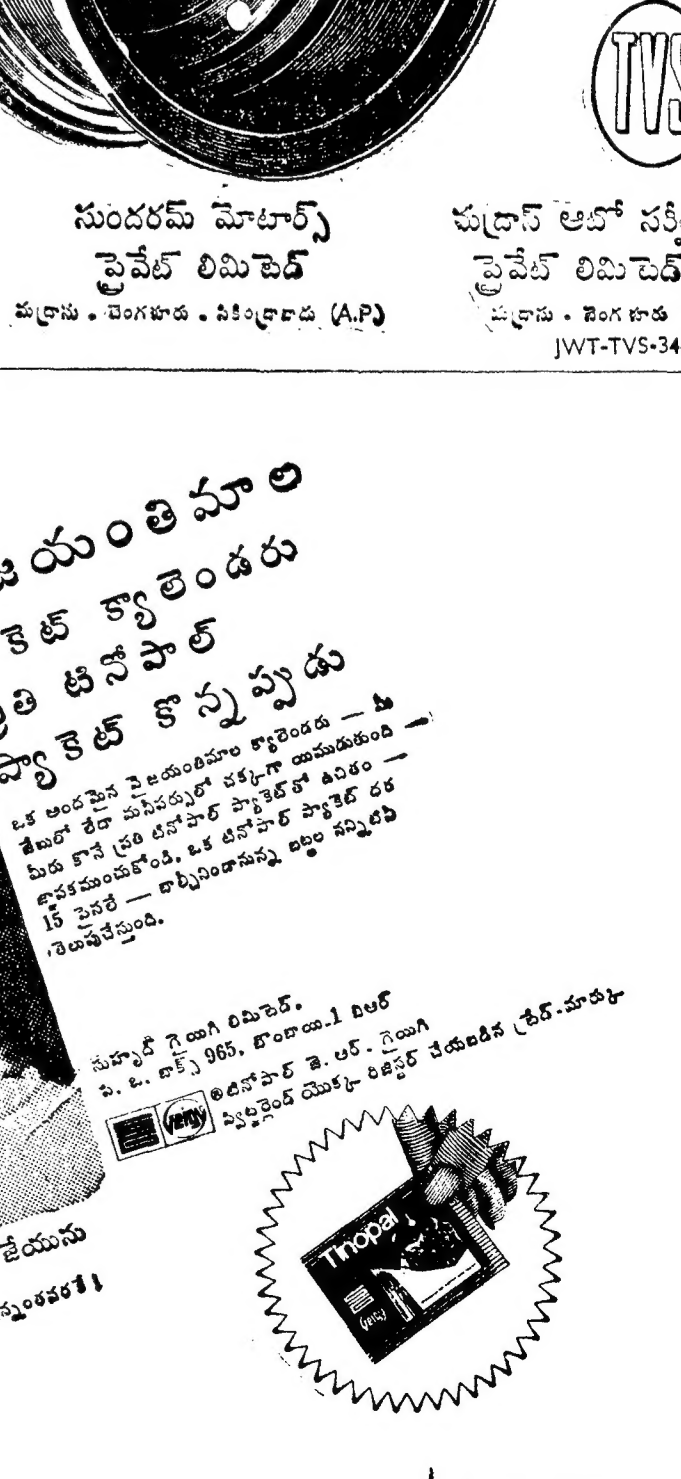 TVS
సుందరమ్ మోటార్స్
ప్రైవేట్ లిమిటెడ్
మద్రాసు • బెంగళూరు • సికింద్రాబాదు (A.P.)
మద్రాస్ ఆటో
ప్రైవేట్ లిమిటెడ్
మద్రాసు • బెంగళూరు
JWT-TVS-34
యంతిమాల
కెట్ క్యాలెండరు
టినోపాల్
ప్యాకెట్ కొన్నప్పుడు
ఒక అందమైన వైజయంతిమాల క్యాలెండరు — మీ
జేబులో లేదా మనీపర్సులో చక్కగా యిముడుతుంది —
మీరు కొనే ప్రతి టినోపాల్ ప్యాకెట్‌తో ఉచితం —
జ్ఞాపకముంచుకోండి, ఒక టినోపాల్ ప్యాకెట్ ధర
15 పైసలే — బాల్చీనిండానున్న బట్టల నన్నిటిని
తెలుపుచేస్తుంది.
సుహృద్ గైయిగి లిమిటెడ్.
పి. ఒ. బాక్స్ 965, బొంబాయి-1 బిఆర్
Geigy
® టినోపాల్ జె. ఆర్. గైయిగి
స్విట్జర్లెండ్ యొక్క రిజిస్టర్ చేయబడిన ట్రేడ్-మార్కు
జేయును
Tinopal
Geigy